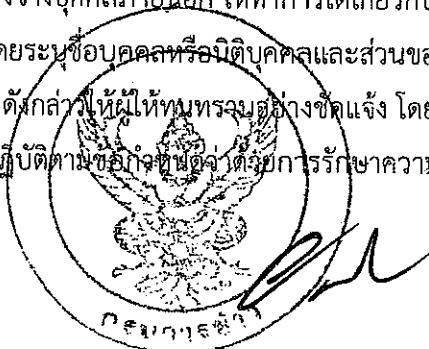 บุคคลภายนอก
โดยระบุชื่อบุคคลหรือนิติบุคคลและส่วนขอ
ดังกล่าวให้ผู้ให้ทุนทราบอย่างชัดแจ้ง โดย
ฏิบัติตามข้อกำหนดว่าด้วยการรักษาความ
กรมการข้าว